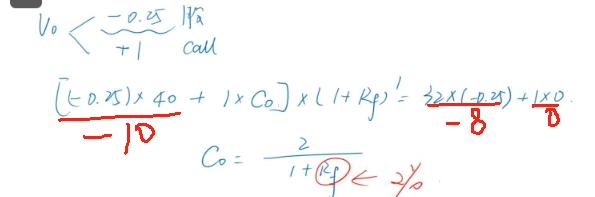 V₀ < -0.25 股
+1 call
[(-0.25)×40 + 1×C₀]×(1+Rf)¹ = 32×(-0.25)+1×0
-10 -8 0
C₀ = 2 / 1+Rf ← 2%